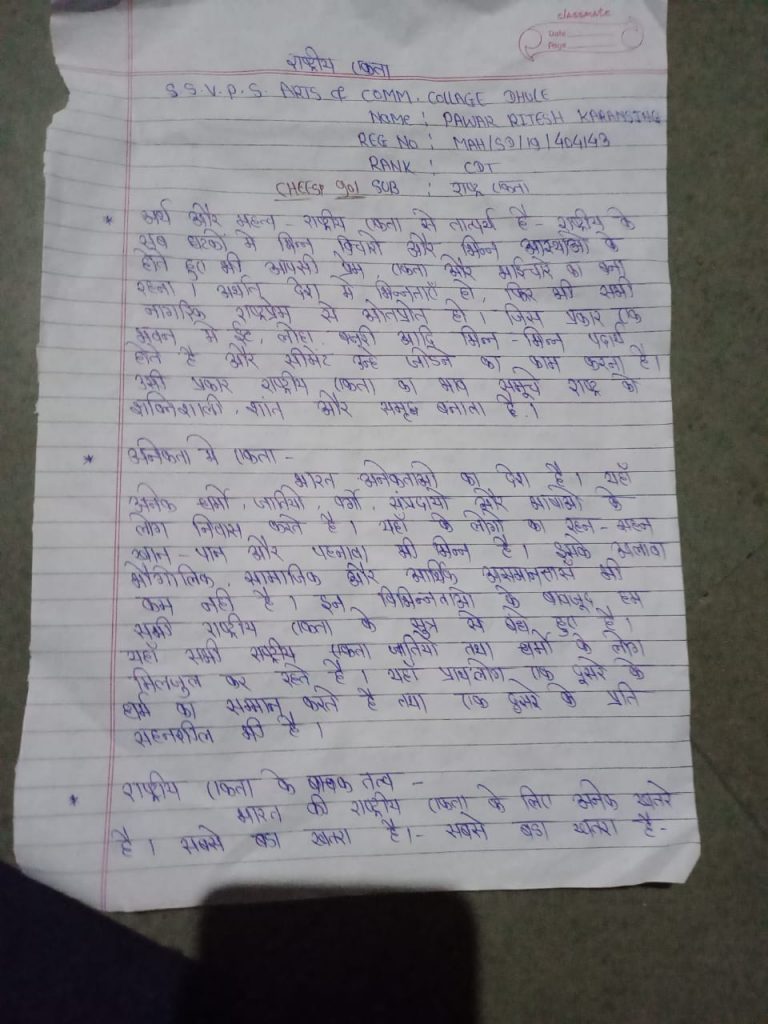 classmate
Date
Page
राष्ट्रीय एकता
S.S.V.P.S. ARTS & COMM. COLLAGE DHULE
Name : PAWAR RITESH KARANSING
REG NO : MAH/SD/19/404143
RANK : CDT
SUB : राष्ट्र एकता
* अर्थ और महत्व - राष्ट्रीय एकता से तात्पर्य है - राष्ट्रीय के
सब घटको मे भिन्न विचारो और भिन्न आस्थाओ के
होते हुए भी आपसी प्रेम, एकता और का बना
रहना । अर्थात देश मे भिन्नताएँ हो, फिर भी सभी
नागरिक राष्ट्रप्रेम से ओतप्रोत हो । जिस प्रकार एक
भवन मे ईट, लोहा, आदि भिन्न - भिन्न पदार्थ
होते है और सीमेंट उन्हे जोडने का काम करना है।
उसी प्रकार राष्ट्रीय एकता का भाव समूचे राष्ट्र को
शक्तिशाली, शांत और समृद्ध बनाता है.।
* अनेकता मे एकता -
भारत अनेकताओ का देश है । यहाँ
अनेक धर्मो, जातियो, वर्गो, संप्रदायो और भाषाओ के
लोग निवास करते है । यहाँ के लोगो का रहन - सहन
खान - पान और पहनावा भी भिन्न है । इसके अलावा
भौगोलिक, सामाजिक और आर्थिक असमानताएँ भी
कम नही है । इन विभिन्नताओ के बावजूद हम
सभी राष्ट्रीय एकता के सुत्र से बंधे हुए है ।
यहाँ सभी राष्ट्रीय एकता जातियो तथा धर्मो के लोग
मिलजुल कर रहते है । यहाँ एक दुसरे के
धर्म का सम्मान करते है तथा एक दुसरे के प्रति
सहनशील भी है ।
* राष्ट्रीय एकता के बाधक तत्व -
भारत की राष्ट्रीय एकता के लिए अनेक खतरे
है । सबसे बडा खतरा है।- सबसे बडा खतरा है-